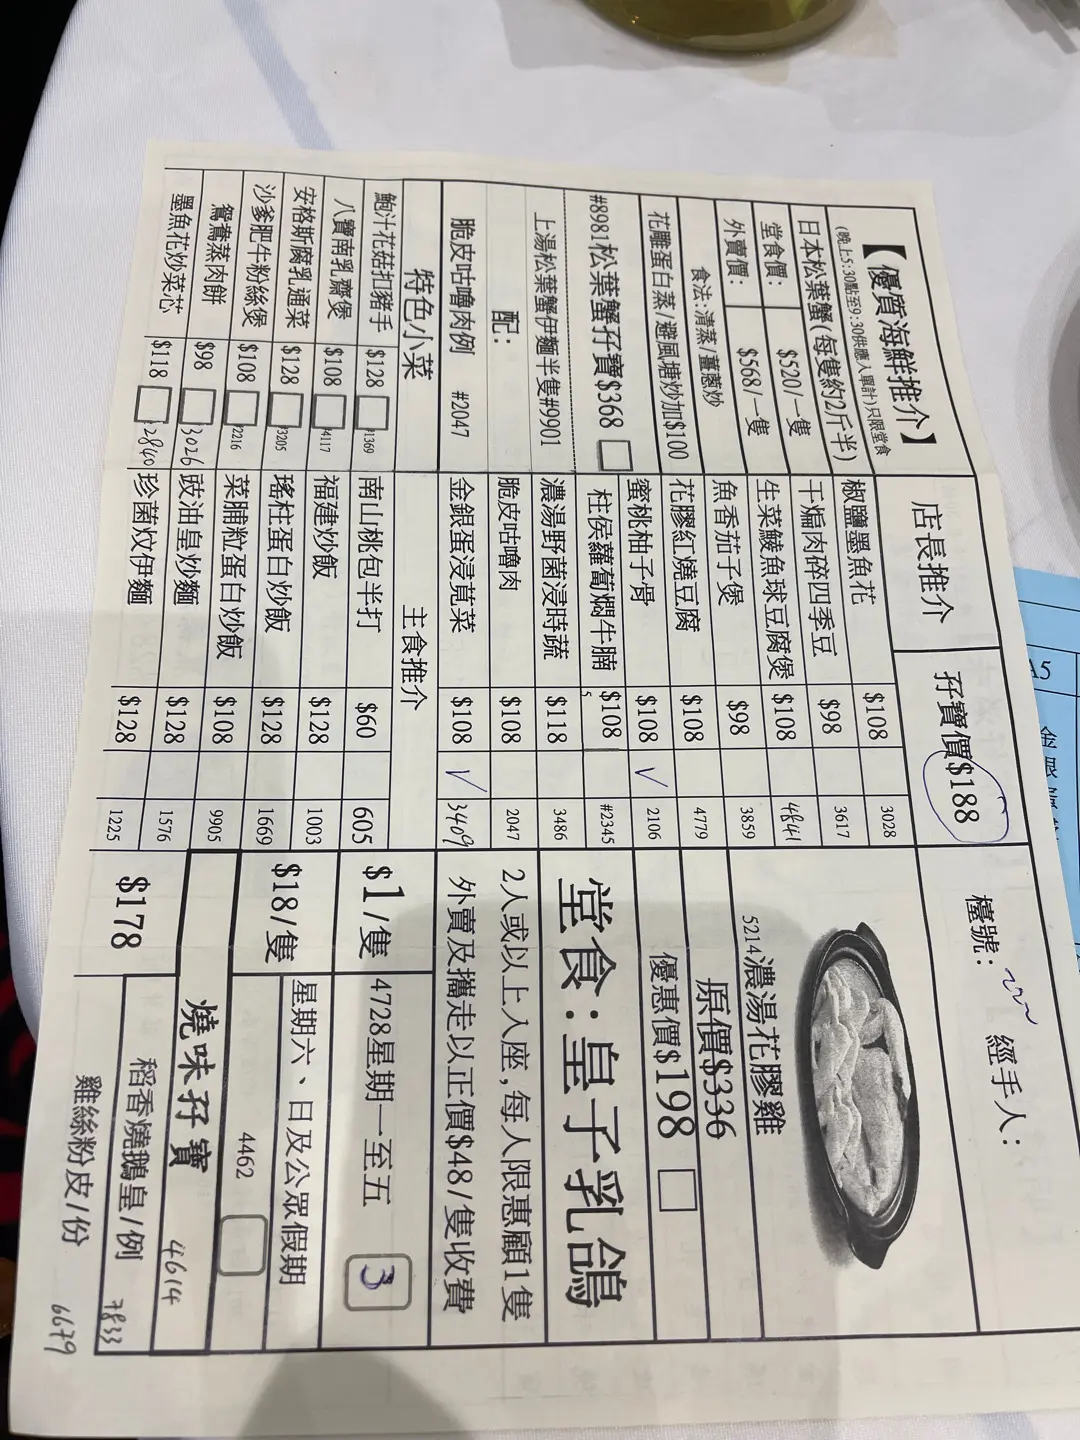 【優質海鮮推介】
(晚上5:30點至9:30供應人單計)只限堂食
日本松葉蟹(每隻約2斤半)
堂食價: $520/一隻
外賣價: $568/一隻
食法:清蒸/薑蔥炒
花雕蛋白蒸/避風塘炒加$100
#8981松葉蟹孖寶$368
上湯松葉蟹伊麵半隻#9901
配:
脆皮咕嚕肉例 #2047
特色小菜
鮑汁花菇扣豬手 $128 #1369
八寶南乳齋煲 $108 #4117
安格斯腐乳通菜 $128 #3205
沙爹肥牛粉絲煲 $108 #2216
鴛鴦蒸肉餅 $98 3026
墨魚花炒菜芯 $118 2840
店長推介 孖寶價$188
椒鹽墨魚花 $108 3028
干煸肉碎四季豆 $98 3617
生菜鯪魚球豆腐煲 $108 4841
魚香茄子煲 $98 3859
花膠紅燒豆腐 $108 4779
蜜桃柚子骨 $108 ✓ 2106
柱侯蘿蔔燜牛腩 $108 #2345
濃湯野菌浸時蔬 $118 3486
脆皮咕嚕肉 $108 2047
金銀蛋浸莧菜 $108 ✓ 3409
主食推介
南山桃包半打 $60 605
福建炒飯 $128 1003
瑤柱蛋白炒飯 $128 1669
菜脯粒蛋白炒飯 $108 9905
豉油皇炒麵 $128 1576
珍菌炆伊麵 $128 1225
檯號: 經手人:
5214濃湯花膠雞
原價$336
優惠價$198
堂食:皇子乳鴿
2人或以上入座,每人限惠顧1隻
外賣及攜走以正價$48/隻收費
$1/隻 4728星期一至五 3
$18/隻 星期六、日及公眾假期
4462
燒味孖寶 4614
$178 稻香燒鵝皇/例 7833
雞絲粉皮/份 6679
A5
金
銀